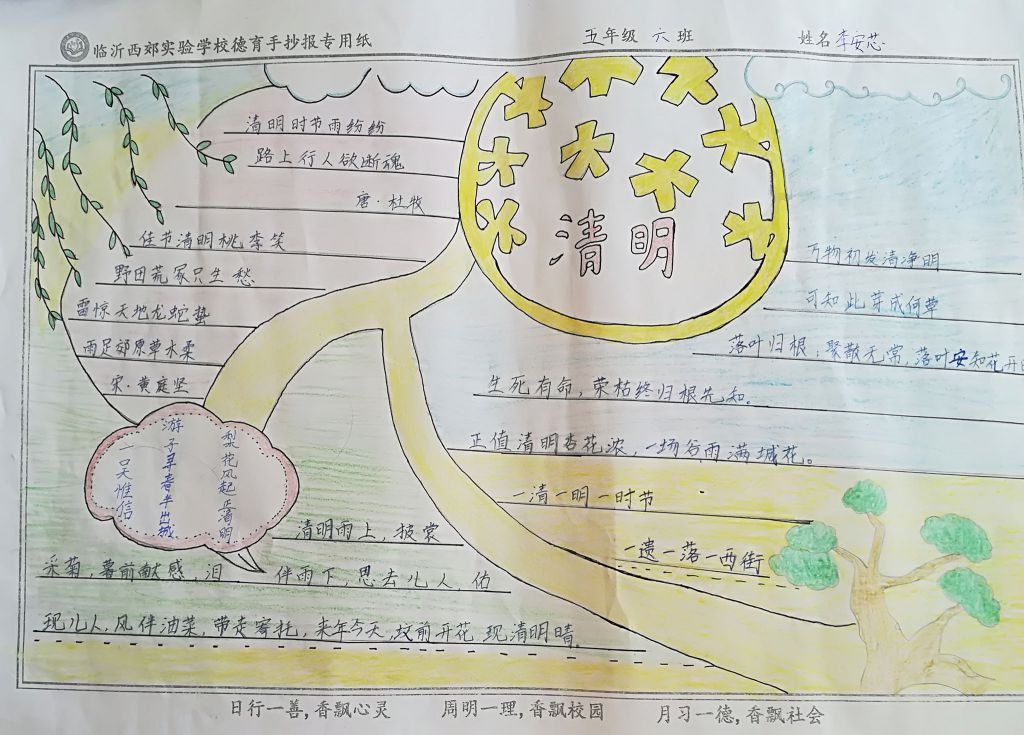 临沂西郊实验学校德育手抄报专用纸
五年级 六班
姓名 李安芯
清明
清明时节雨纷纷
路上行人欲断魂
唐·杜牧
佳节清明桃李笑
野田荒冢只生愁
雷惊天地龙蛇蛰
雨足郊原草木柔
宋·黄庭坚
梨花风起正清明
游子寻春半出城
一吴惟信
万物初发清净明
可知此芽成何草
落叶归根，聚散无常，落叶安知花开日
生死有命，荣枯终归根先知。
正值清明杏花浓，一场谷雨满城花。
一清一明一时节
一遗一落一西街
清明雨上，披裳
采菊，暮前献感，泪 伴雨下，思去儿人，佑
现儿人，风伴油菜，带走寄托，来年今天，坟前开花，现清明晴。
日行一善，香飘心灵 周明一理，香飘校园 月习一德，香飘社会